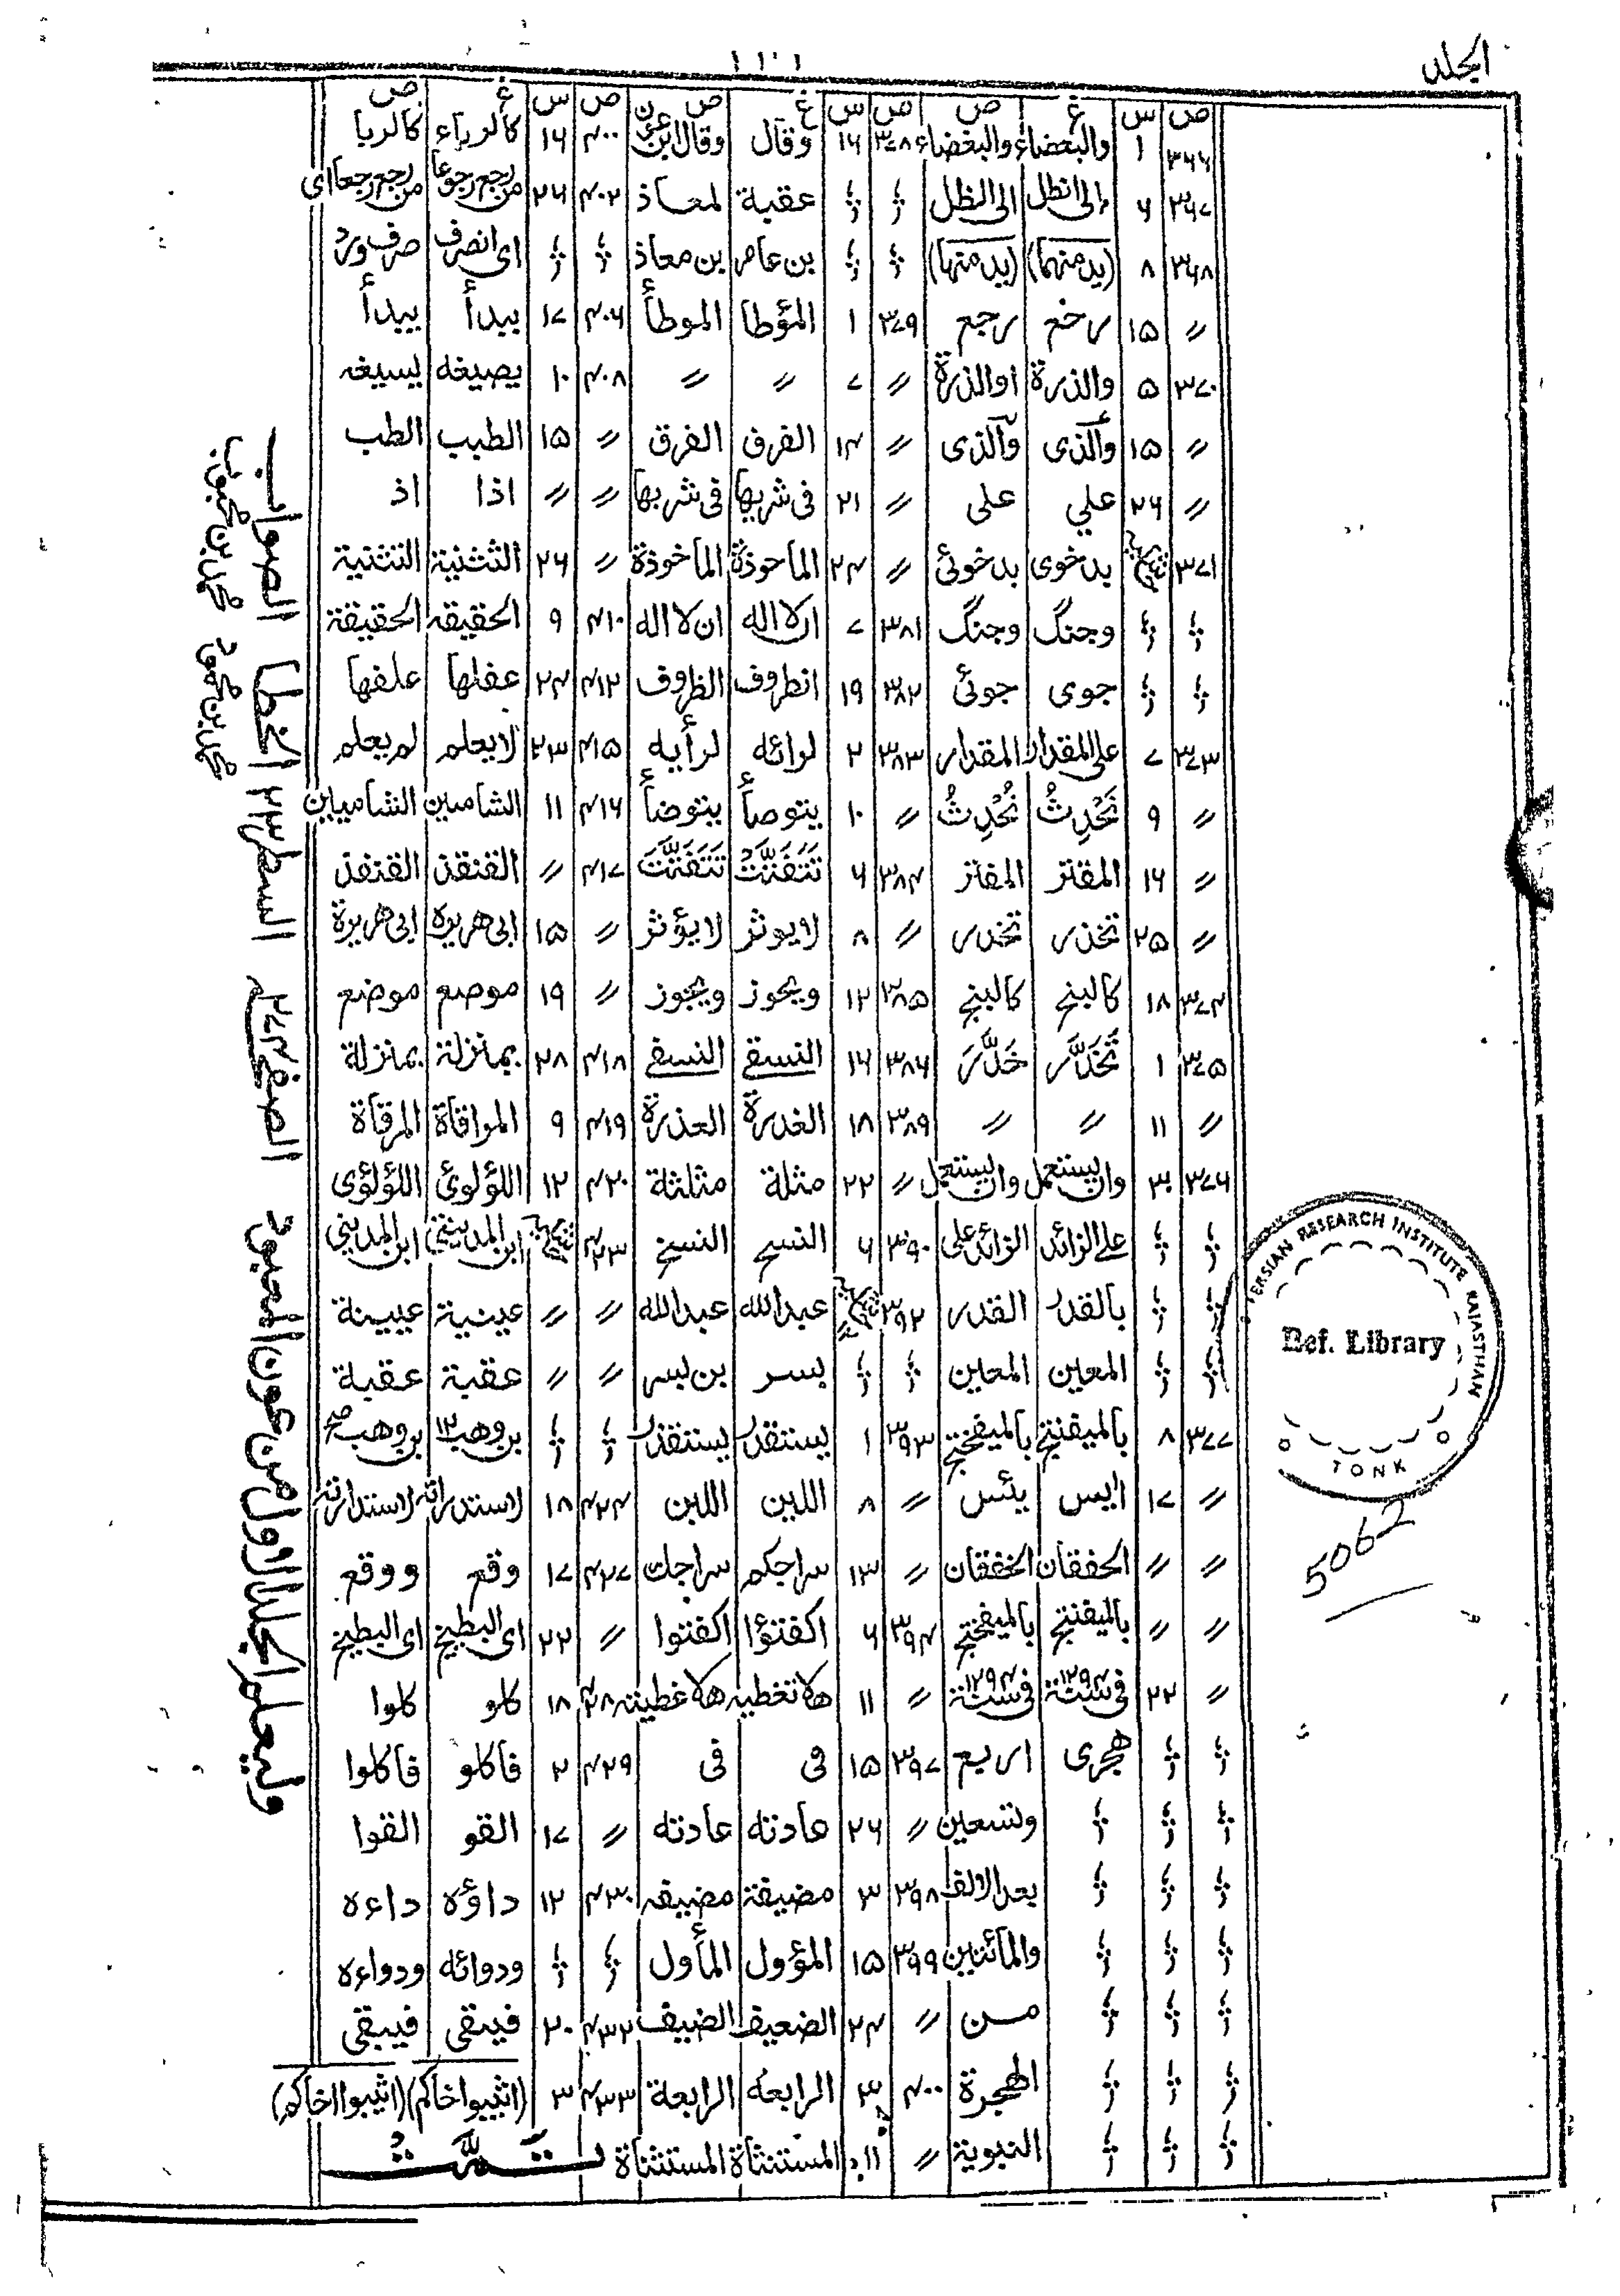 الجلد
ص س غ ص ص س غ ص ص س غ ص
٣٦٦ ١ والبعضاء والبغضاء ٣٧٨ ١٦ وقال وقال ابن ٤٠٠ ١٦ كالرياء كالريا
٣٦٧ ٦ إلى انطل الى الظل ؞ ؞ عقبة لمعاذ ٤٠٢ ٢٦ من يرجع رجوعا من يرجع رجعا اى
٣٦٨ ٨ (يد منهما) (يد منها) ؞ ؞ بن عامر بن معاذ ؞ ؞ اى انصرف صرف ورد
〃 ١٥ رخع رجع ٣٧٩ ١ المؤطا الموطأ ٤٠٦ ١٧ يبدأ يبدأ
٣٧٠ ٥ والذرة اوالذرة 〃 ٧ 〃 〃 ٤٠٨ ١٠ يصيغه يسيغه
〃 ١٥ وآلذى وآلذى 〃 ١٤ الفرف الفرق 〃 ١٥ الطيب الطب
〃 ٢٦ علي على 〃 ٢١ فى شربها فى شربها 〃 〃 اذا اذ
٣٧١ بدخوى بدخوئى 〃 ٢٤ الماحوذة الماخوذة 〃 ٢٦ الثثنية التثنية
؞ ؞ وجنگ وجنگ ٣٨١ ٧ ان لا اله ان لا اله ٤١٠ ٩ الحقيقه الحقيقة
؞ ؞ جوى جوئى ٣٨٢ ١٩ انطروف الظروف ٤١٢ ٢٤ عفلها علفها
٣٧٣ ٧ على المقدار المقدار ٣٨٣ ٢ لرائه لرأيه ٤١٥ ٢٣ لا يعلم لم يعلم
〃 ٩ تحدث تحدث 〃 ١٠ يتوصأ يتوضأ ٤١٦ ١١ الشامين الشاميين
〃 ١٦ المقتر المفتر ٣٨٤ ٦ ٤١٧ 〃 القنقذ القنفذ
〃 ٢٥ تخذر تخدر 〃 ٨ لا يوثر لا يؤثر 〃 ١٥ ابى هريره ابى هريرة
٣٧٤ ١٨ كالبنج كالبنج ٣٨٥ ١٢ ويحوز ويجوز 〃 ١٩ موصع موضع
٣٧٥ ١ تخدر خدر ٣٨٦ ١٦ النسقے النسفے ٤١٨ ٢٨ بمانزلة بمنزلة
〃 ١١ 〃 〃 ٣٨٩ ١٨ الغدرة العذرة ٤١٩ ٩ المراقاة المرقاة
٣٧٦ ٣ وان يستعمل وان يستعمل 〃 ٢٢ مثلة مثلثة ٤٢٠ ١٢ اللؤلوئ اللؤلؤى
؞ ؞ على الزائد الزائد على ٣٩٠ ٦ النسح النسخ ٤٢٣ ابن المدينتى ابن المدينى
؞ ؞ بالقدر القدر ٣٩٢ عبدالله عبدالله 〃 〃 عينية عيينة
؞ ؞ المعين المعين ؞ ؞ بسر بن بسر 〃 〃 عقبة عقبة
٣٧٧ ٨ بالميفنتج بالميفختج ٣٩٣ ١ يستقذر يستقذر ؞ ؞ بن وهب١٢ بن وهب
〃 ١٧ ايس يئس 〃 ٨ اللبن اللبن ٤٢٤ ١٨ لاستدراته لاستدارته
〃 〃 الحفقان الخفقان 〃 ١٣ سراجكم سراجك ٤٢٧ ١٧ وقع ووقع
〃 〃 بالميفنتج بالميفختج ٣٩٤ ٦ اكفتؤا اكفتوا 〃 ٢٢ اى البطيخ اى البطيخ
〃 ٢٢ فى سنة ١٢٩٤ فى سنة ١٢٩٤ 〃 ١١ هلا تخطيه هلا غطيته ٤٢٨ ١٨ كلو كلوا
؞ ؞ هجرى اربع ٣٩٧ ١٥ فى فى ٤٢٩ ٢ فاكلو فاكلوا
؞ ؞ ؞ وتسعين 〃 ٢٦ عادته عادته 〃 ١٧ القو القوا
؞ ؞ ؞ بعد الالف ٣٩٨ ٣ مضيقة مضيقه ٤٣٠ ١٢ داؤه داءه
؞ ؞ ؞ والمأتين ٣٩٩ ١٥ المؤول المأول ؞ ؞ ودوائه ودواءه
؞ ؞ ؞ من 〃 ٢٤ الضعيف الضيف ٤٣٢ ٢٠ فيبقى فيبقى
؞ ؞ ؞ الهجرة ٤٠٠ ٣ الرابعه الرابعة ٤٣٣ ٣ (اثيبوا خاكم) (اثيبوا اخاكم)
؞ ؞ ؞ النبوية 〃 ١١ المستنثاة المستثناة تمت
وليعلم الجلد الاول من عون المعبود الصفحة ٢٧٤ السطر ٢٣ الخطا الصواب
محمد بن محمود محمد بن محبوب
PERSIAN RESEARCH INSTITUTE RAJASTHAN
Ref. Library
TONK
5062